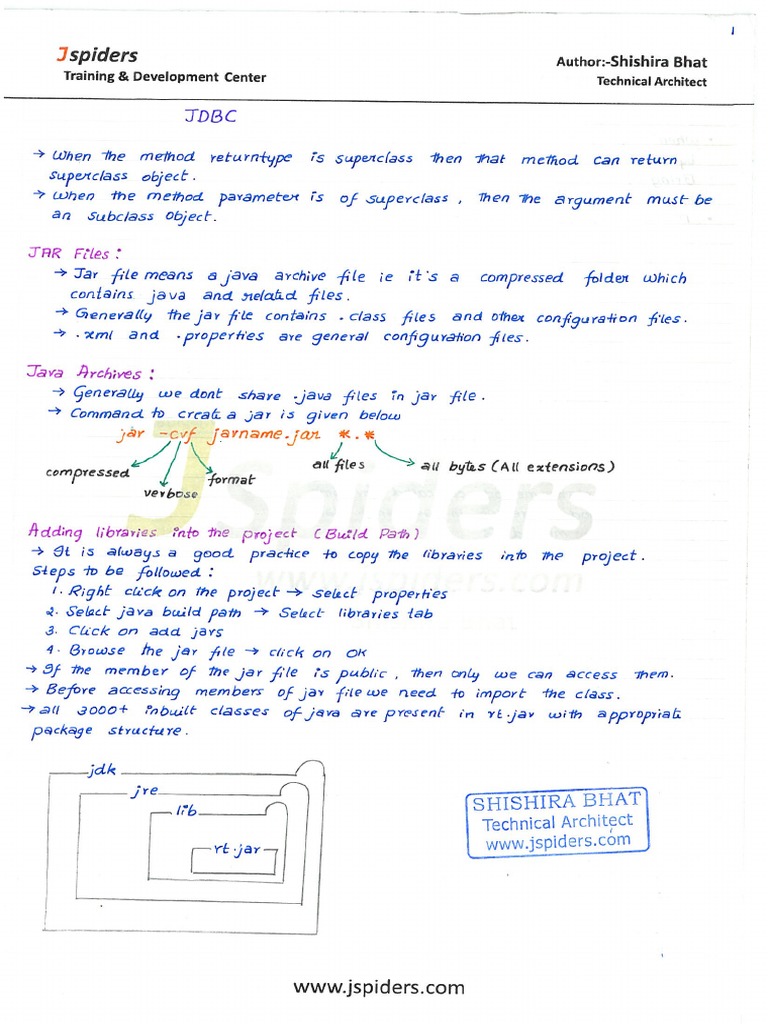 1
Jspiders
Training & Development Center
Author:-Shishira Bhat
Technical Architect
JDBC
→ When the method returntype is superclass then that method can return
superclass object.
→ When the method parameter is of superclass, Then the argument must be
an subclass object.
JAR Files:
→ Jar file means a java archive file ie it's a compressed folder which
contains java and related files.
→ Generally the jar file contains .class files and other configuration files.
→ .xml and .properties are general configuration files.
Java Archives:
→ Generally we dont share .java files in jar file.
→ Command to create a jar is given below
jar -cvf jarname.jar *.*
compressed
verbose
format
all files
all bytes (All extensions)
Jspiders
www.jspiders.com
Adding libraries into the project (Build Path)
→ It is always a good practice to copy the libraries into the project.
Steps to be followed:
1. Right click on the project → select properties
2. Select java build path → Select libraries tab
3. Click on add jars
4. Browse the jar file → click on OK
→ If the member of the jar file is public, then only we can access them.
→ Before accessing members of jar file we need to import the class.
→ all 3000+ inbuilt classes of java are present in rt.jar with appropriate
package structure.
jdk
jre
lib
rt.jar
SHISHIRA BHAT
Technical Architect
www.jspiders.com
www.jspiders.com